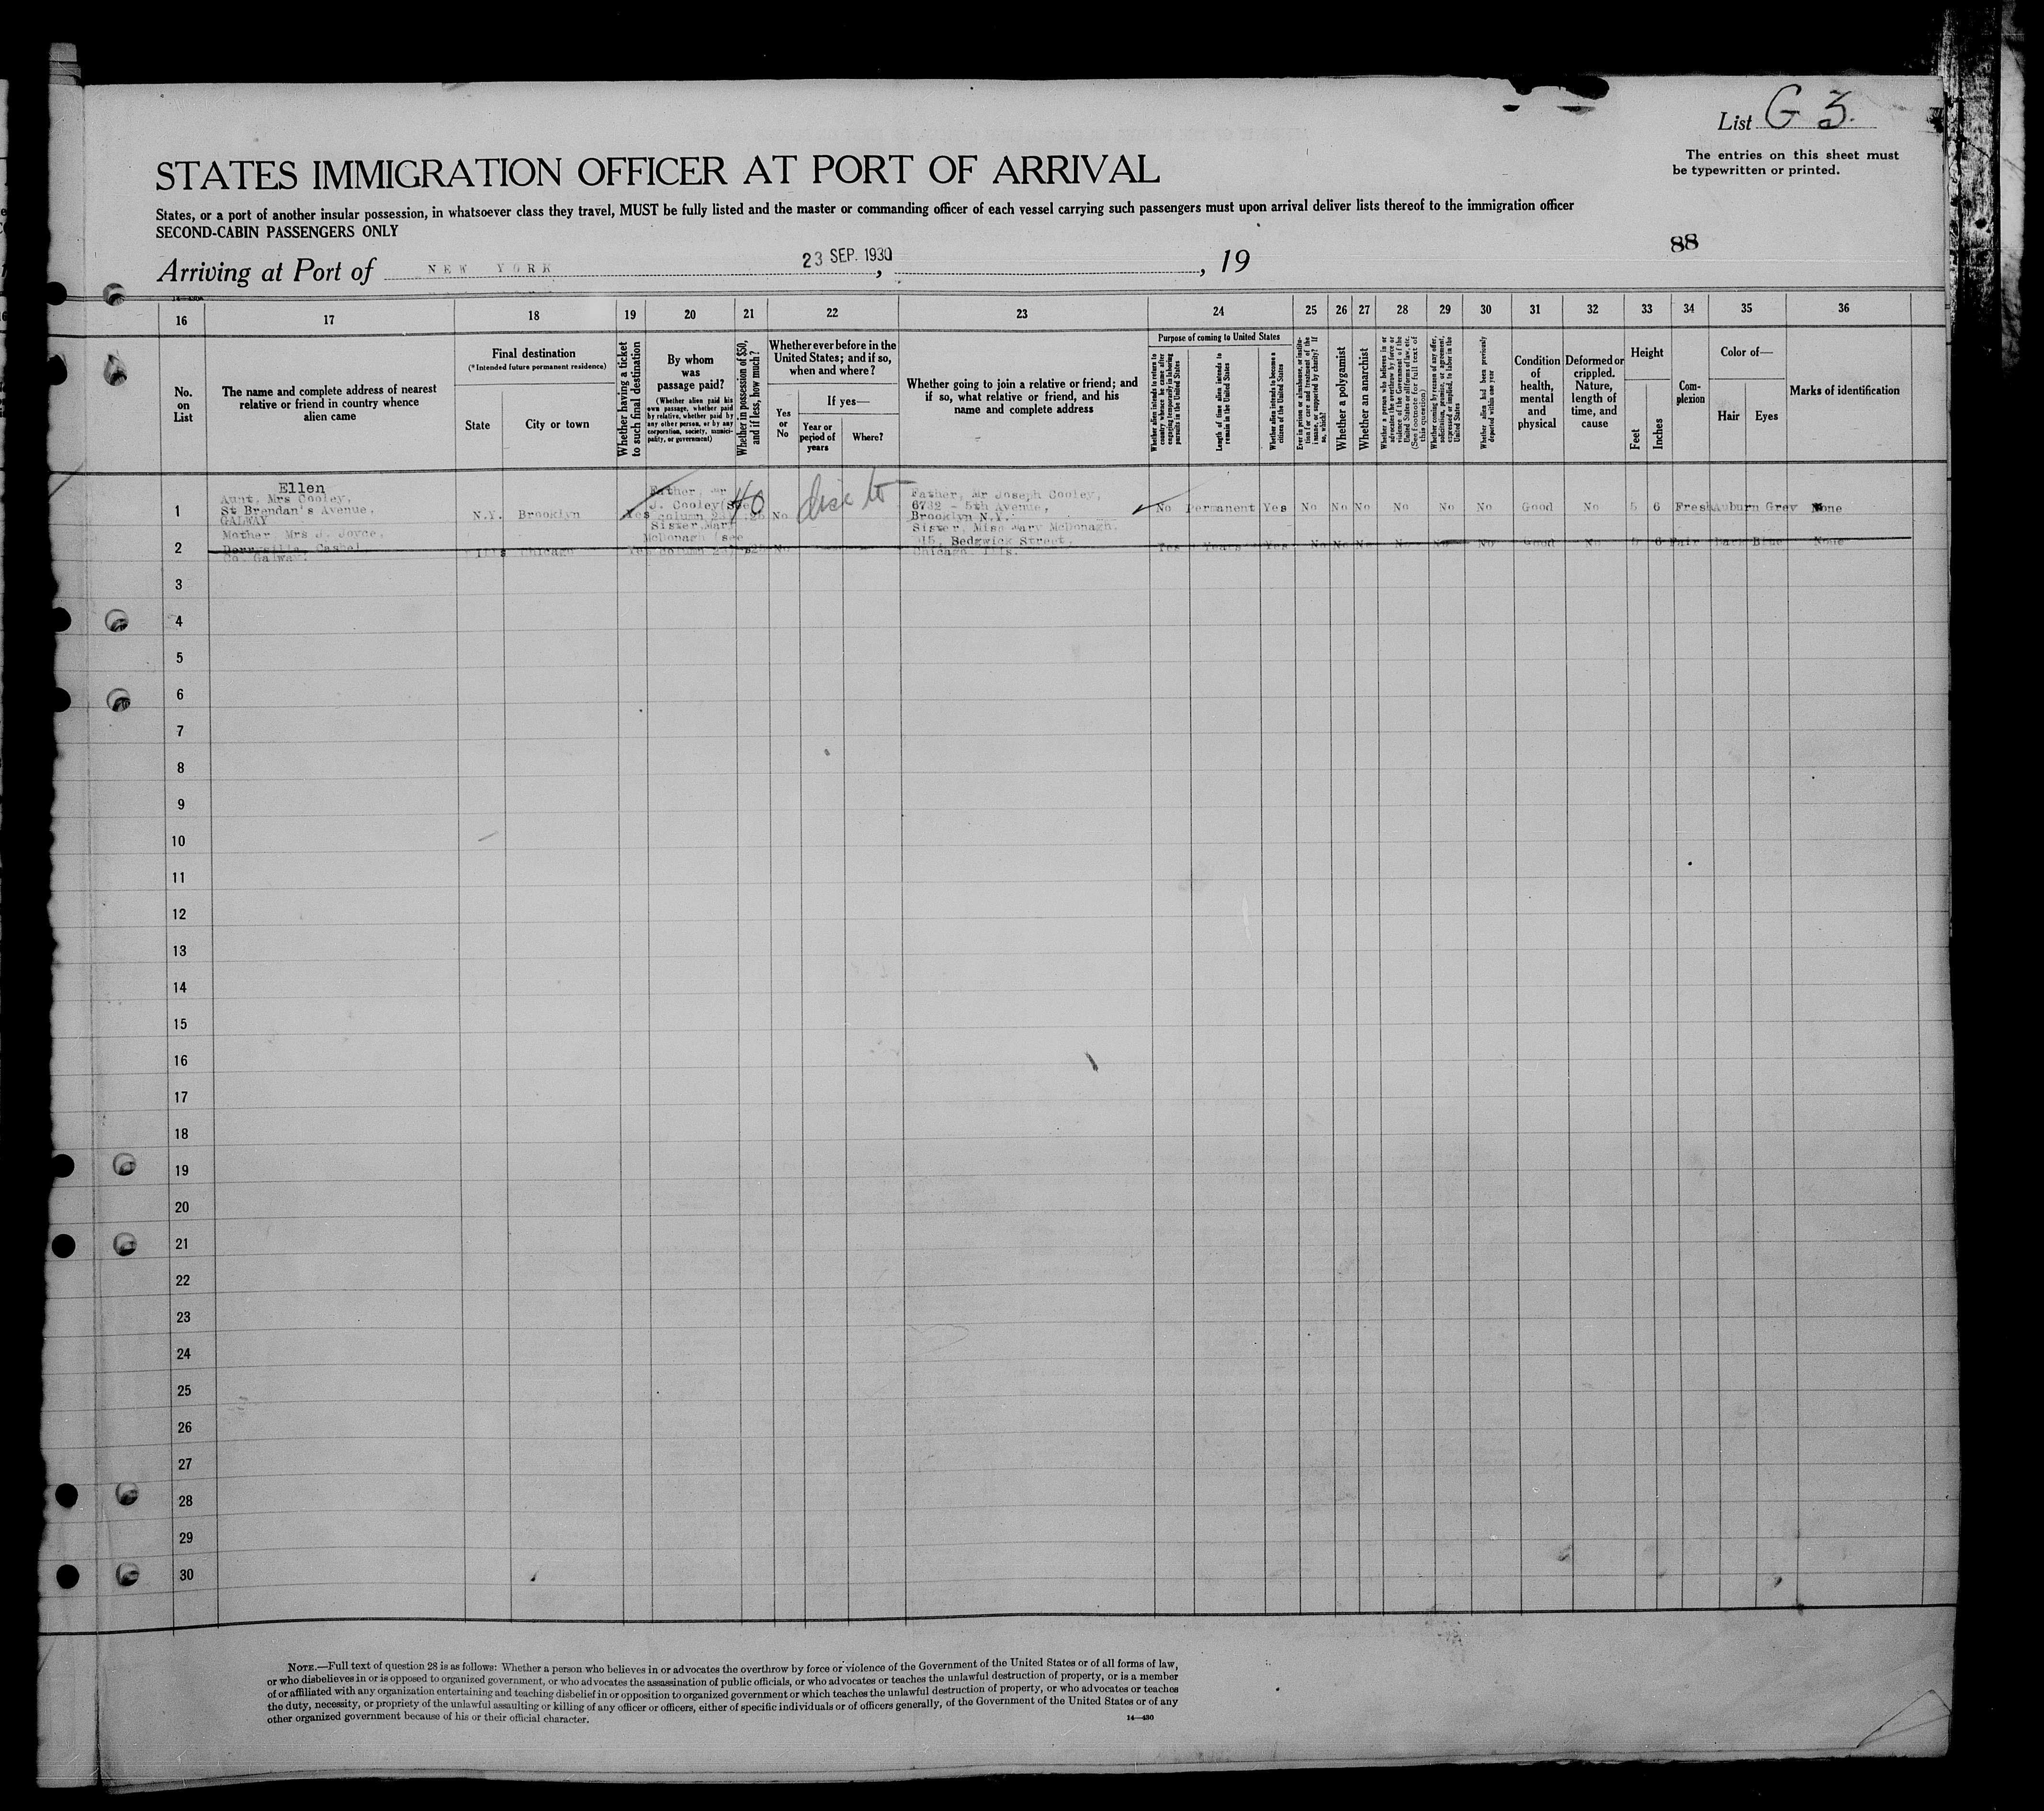 List G 3.
The entries on this sheet must
be typewritten or printed.
STATES IMMIGRATION OFFICER AT PORT OF ARRIVAL
States, or a port of another insular possession, in whatsoever class they travel, MUST be fully listed and the master or commanding officer of each vessel carrying such passengers must upon arrival deliver lists thereof to the immigration officer
SECOND-CABIN PASSENGERS ONLY
88
Arriving at Port of NEW YORK 23 SEP. 1930, , 19
16 17 18 19 20 21 22 23 24 25 26 27 28 29 30 31 32 33 34 35 36
No.
on
List
The name and complete address of nearest
relative or friend in country whence
alien came
Final destination
(*Intended future permanent residence)
State
City or town
Whether having a ticket
to such final destination
By whom
was
passage paid?
(Whether alien paid his
own passage, whether paid
by relative, whether paid by
any other person, or by any
corporation, society, munici-
pality, or government)
Whether in possession of $50,
and if less, how much?
Whether ever before in the
United States; and if so,
when and where?
Yes
or
No
If yes—
Year or
period of
years
Where?
Whether going to join a relative or friend; and
if so, what relative or friend, and his
name and complete address
Purpose of coming to United States
Whether alien intends to return to
country whence he came after
engaging temporarily in laboring
pursuits in the United States
Length of time alien intends to
remain in the United States
Whether alien intends to become a
citizen of the United States
Ever in prison or almshouse, or institu-
tion for care and treatment of the
insane, or supported by charity? If
so, which?
Whether a polygamist
Whether an anarchist
Whether a person who believes in or
advocates the overthrow by force or
violence of the Government of the
United States or all forms of law, etc.
(See footnote for full text of
this question)
Whether coming by reason of any offer,
solicitation, promise, or agreement,
expressed or implied, to labor in the
United States
Whether alien had been previously
deported within one year
Condition
of
health,
mental
and
physical
Deformed or
crippled.
Nature,
length of
time, and
cause
Height
Feet
Inches
Com-
plexion
Color of—
Hair
Eyes
Marks of identification
1
Ellen
Aunt, Mrs Cooley,
St Brendan's Avenue,
GALWAY
N.Y. Brooklyn Yes
Father, Mr
J. Cooley(see
column 23)
40
No
Father, Mr Joseph Cooley,
6732 - 5th Avenue,
Brooklyn N.Y.
No Permanent Yes No No No No No No Good No 5 6 Fresh Auburn Grey None
2
Mother, Mrs J. Joyce,
Co. Galway.
Ills Chicago Yes
Sister, Mary
McDonagh (see
column 23)
$25 No
Sister, Miss Mary McDonagh.
Sedgwick Street,
Chicago. Ills.
Yes Years Yes No No No No No No Good No 5 6 Fair Dark Blue None
3
4
5
6
7
8
9
10
11
12
13
14
15
16
17
18
19
20
21
22
23
24
25
26
27
28
29
30
NOTE.—Full text of question 28 is as follows: Whether a person who believes in or advocates the overthrow by force or violence of the Government of the United States or of all forms of law,
or who disbelieves in or is opposed to organized government, or who advocates the assassination of public officials, or who advocates or teaches the unlawful destruction of property, or is a member
of or affiliated with any organization entertaining and teaching disbelief in or opposition to organized government or which teaches the unlawful destruction of property, or who advocates or teaches
the duty, necessity, or propriety of the unlawful assaulting or killing of any officer or officers, either of specific individuals or of officers generally, of the Government of the United States or of any
other organized government because of his or their official character.
14—430